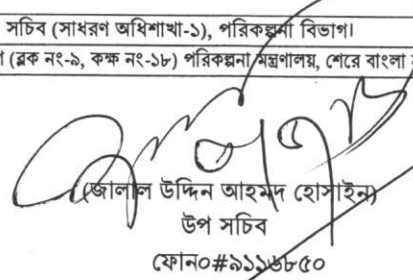 সচিব (সাধরণ অধিশাখা-১), পরিকল্পনা বিভাগ।
(ব্লক নং-৯, কক্ষ নং-১৮) পরিকল্পনা মন্ত্রণালয়, শেরে বাংলা
(জালাল উদ্দিন আহমদ হোসাইন)
উপ সচিব
ফোন০#৯১১৬৮৫০